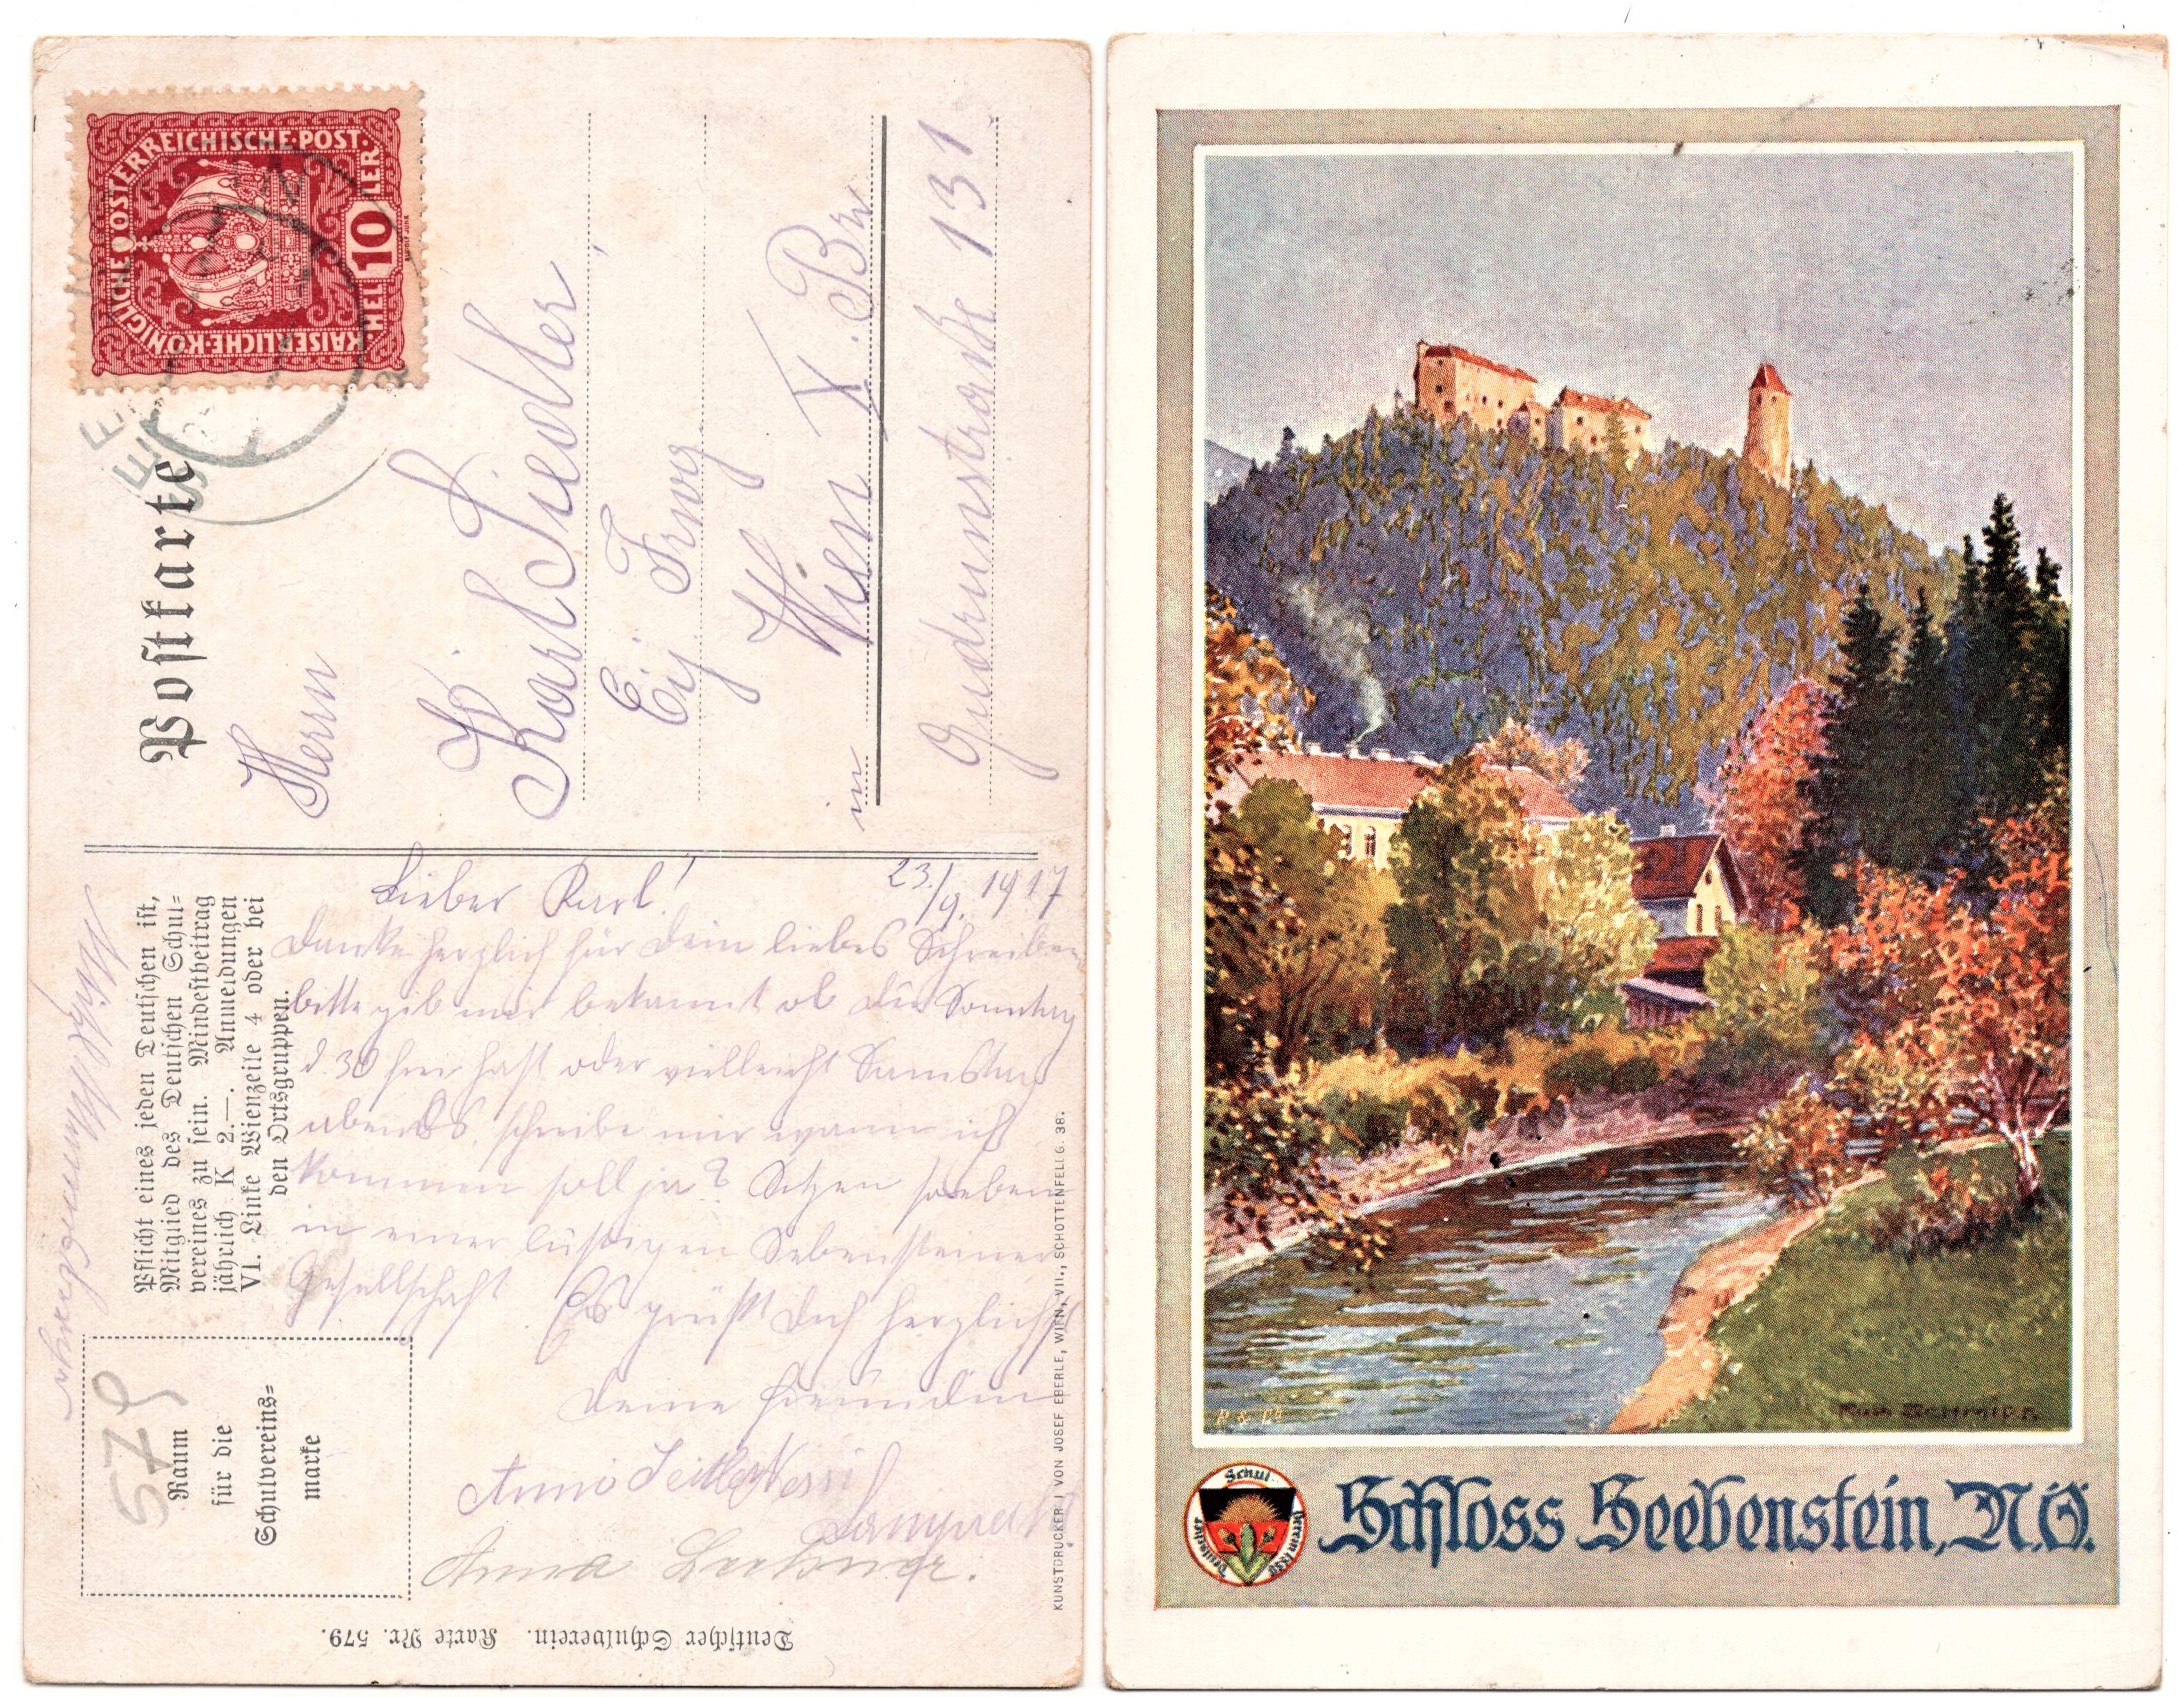 KAISERLICHE·KÖNIGLICHE ÖSTERREICHISCHE·POST.
HELLER.
10
Postkarte
Herrn
Karl Siedler
Wien X. Bz
in
Gudrunstraße 131
Pflicht eines jeden Deutschen ist,
Mitglied des Deutschen Schul-
vereines zu sein. Mindestbeitrag
jährlich K 2.—. Anmeldungen
VI. Linke Wienzeile 4 oder bei
den Ortsgruppen.
Raum
für die
Schulvereins-
marke
579
23./9. 1917
Lieber Karl!
Danke herzlich für Dein liebes Schreiben
bitte gib mir bekannt ob Du Sonntag
d. 30 frei hast oder vielleicht Samstag
abends. schreibe mir wann ich
kommen soll ja? Sitzen soeben
in einer lustigen Sebensteiner
Gesellschaft Es grüßt Dich herzlichst
Deine Freundin
Anna
KUNSTDRUCKEREI VON JOSEF EBERLE, WIEN, VII., SCHOTTENFELDG. 38.
Deutscher Schulverein. Karte Nr. 579.
R & Th
Schloss Seebenstein, N.Ö.
Deutscher Schul Verein 1880